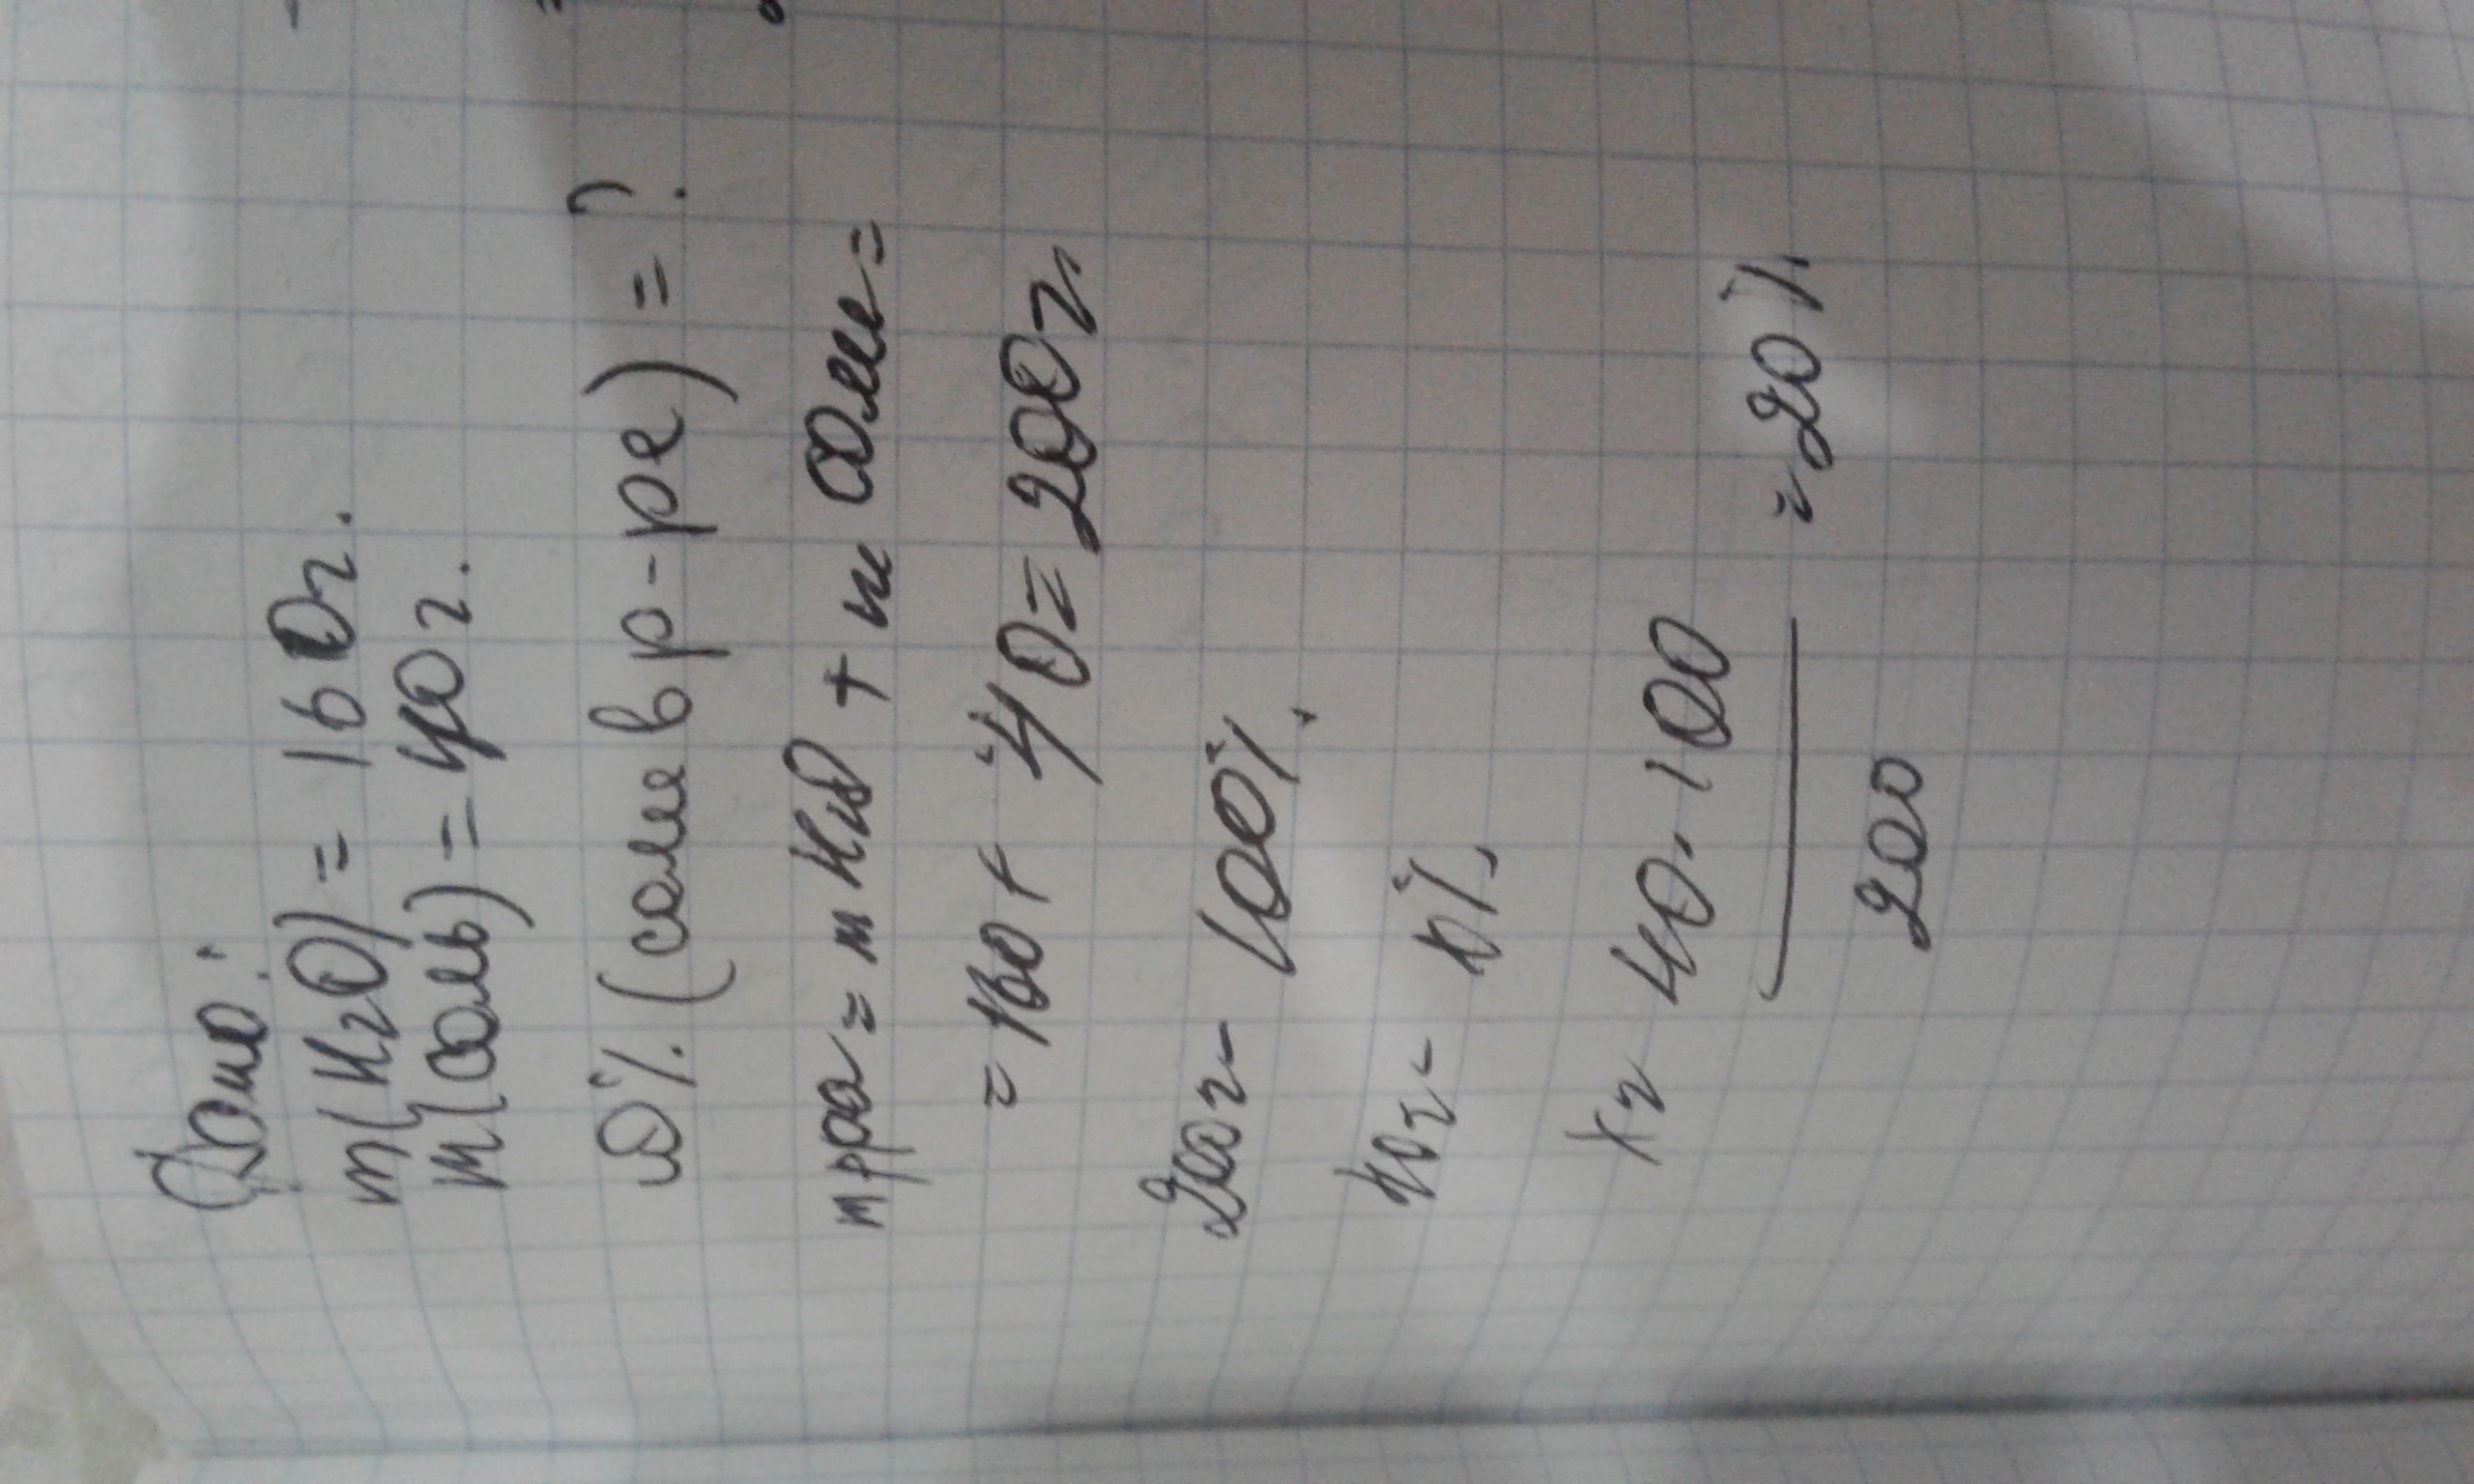 Дано:
m(H2O) = 160г.
m(соль) = 40г.
ω%(соли в р-ре) = ?
m рра = m H2O + m соли =
= 160 + 40 = 200г
200г - 100%
40г - х%
х = 40 · 100 = 20%
200